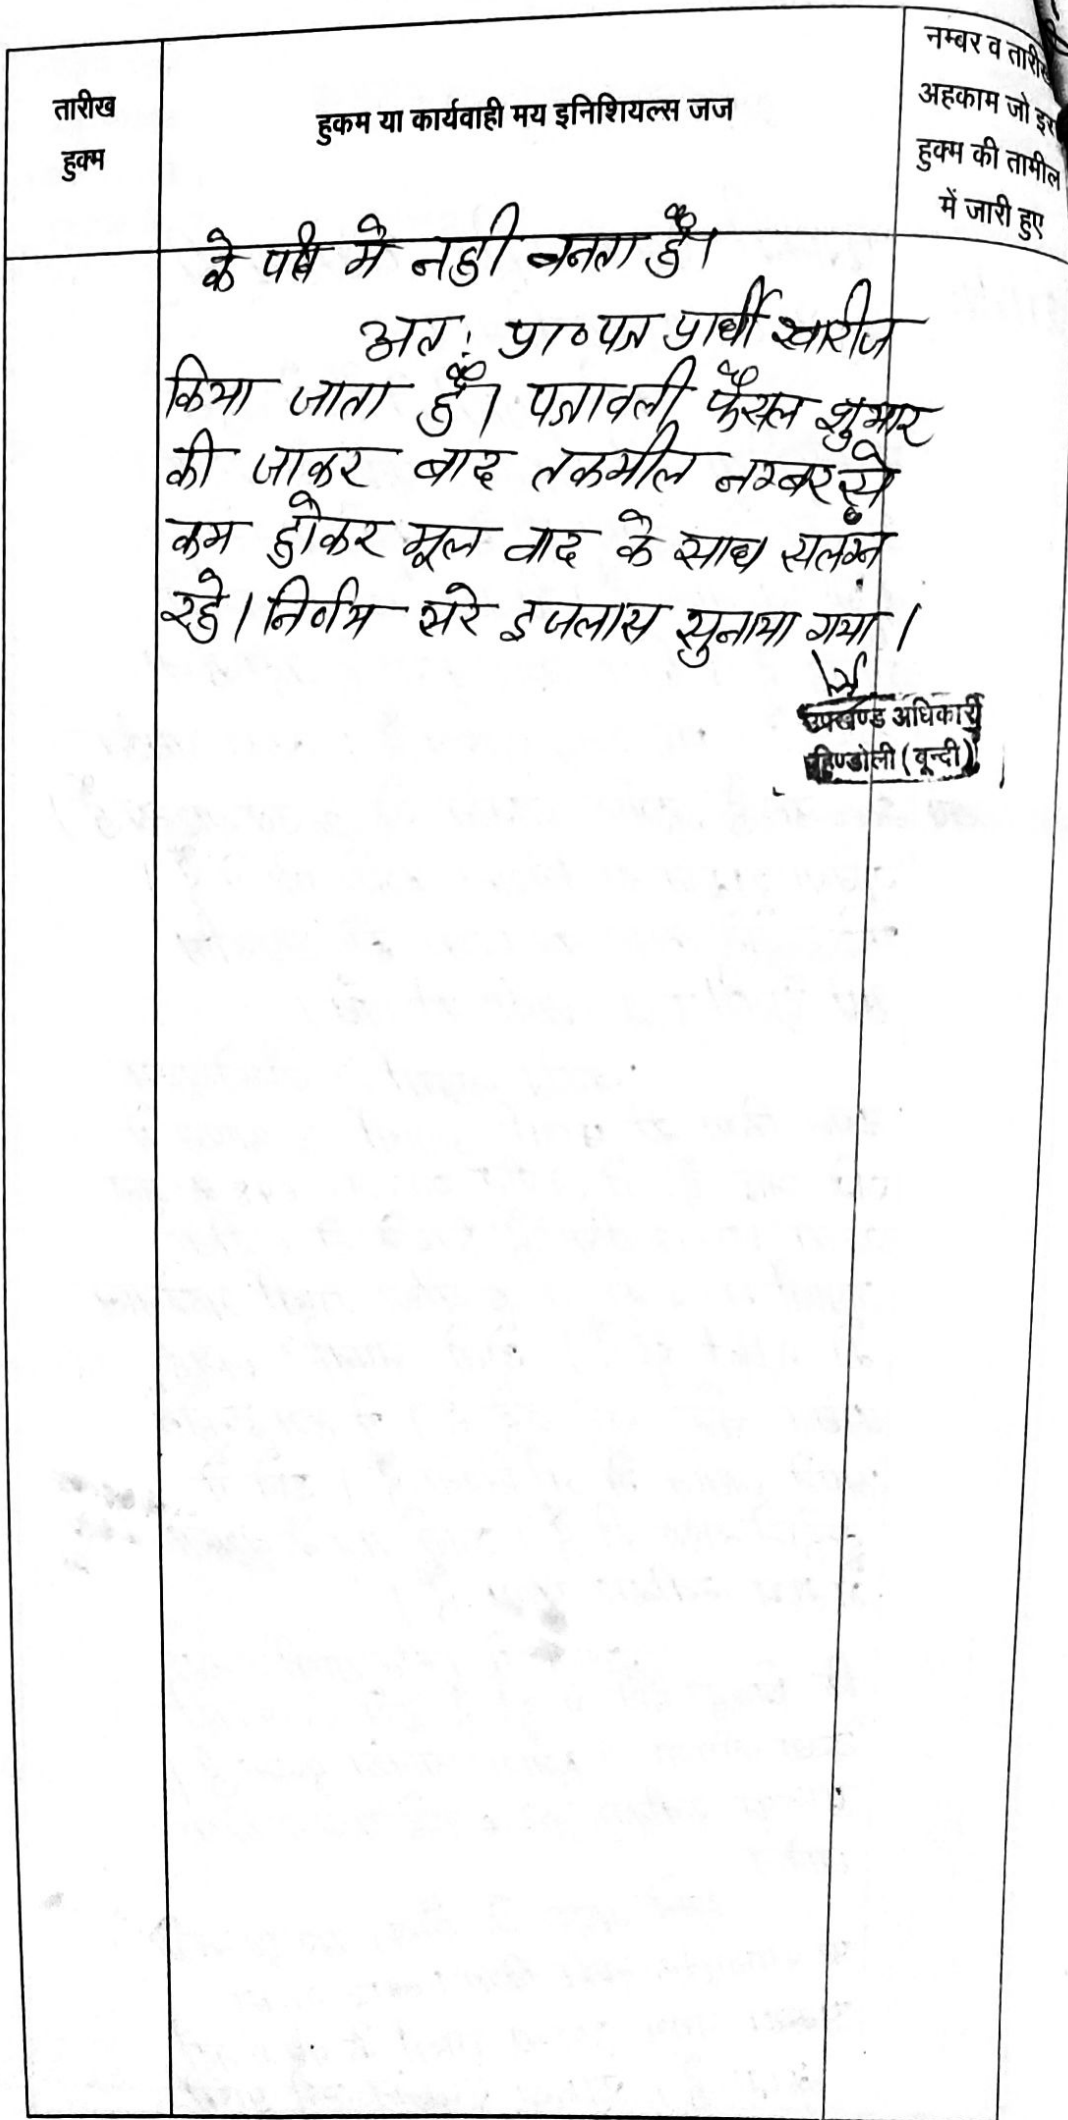 तारीख
हुक्म
हुकम या कार्यवाही मय इनिशियल्स जज
नम्बर व तारीख
अहकाम जो इस
हुक्म की तामील
में जारी हुए
के पक्ष मे नही बनता है।
अत: प्रा०पत्र प्रार्थी खारीज
किया जाता है। पत्रावली फैसल शुमार
की जाकर बाद तकमील नम्बर से
कम होकर मूल वाद के साथ सलंग्न
रहे। निर्णय सरे इजलास सुनाया गया।
उपखण्ड अधिकारी
हिण्डोली (बून्दी)